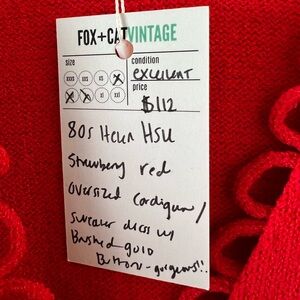 FOX+CATVINTAGE
size
condition
xxs xs s
excellent
price
xl xxl
$112
80s Helen Hsu
Strawberry red
oversized cardigan/
sweater dress w/
Brushed gold
Button - gorgeous!!